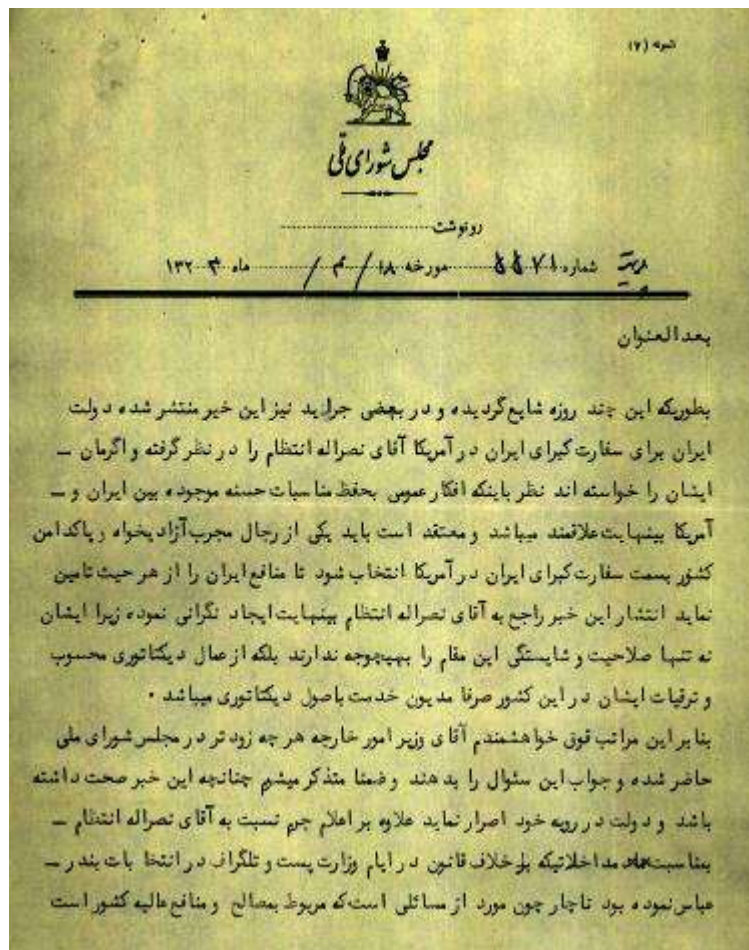 نمونه (۷)
مجلس شورای ملی
رونوشت
شماره ۵۵۷۱ مورخه ۱۸ / ۴ / ماه ۱۳۲۳
بعد العنوان
بطوریکه این چند روزه شایع گردیده و در بعضی جراید نیز این خبر منتشر شده دولت
ایران برای سفارت کبرای ایران در آمریکا آقای نصراله انتظام را در نظر گرفته و اگرمان ــ
ایشان را خواسته اند نظر باینکه افکار عمومی بحفظ مناسبات حسنه موجوده بین ایران و ــ
آمریکا بینهایت علاقمند میباشد و معتقد است باید یکی از رجال مجرب آزادیخواه و پاکدامن
کشور بسمت سفارت کبرای ایران در آمریکا انتخاب شود تا منافع ایران را از هر حیث تامین
نماید انتشار این خبر راجع به آقای نصراله انتظام بینهایت ایجاد نگرانی نموده زیرا ایشان
نه تنها صلاحیت و شایستگی این مقام را بهیچوجه ندارند بلکه از عمال دیکتاتوری محسوب
و ترقیات ایشان در این کشور صرفا مدیون خدمت باصول دیکتاتوری میباشد ۰
بنابر این مراتب فوق خواهشمندم آقای وزیر امور خارجه هر چه زودتر در مجلس شورای ملی
حاضر شده و جواب این سئوال را بدهند و ضمنا متذکر میشوم چنانچه این خبر صحت داشته
باشد و دولت در رویه خود اصرار نماید علاوه بر اعلام جرم نسبت به آقای نصراله انتظام ــ
بمناسبت مداخلاتیکه بر خلاف قانون در ایام وزارت پست و تلگراف در انتخابات بندر ــ
عباس نموده بود ناچار چون مورد از مسائلی است که مربوط بمصالح و منافع عالیه کشور است